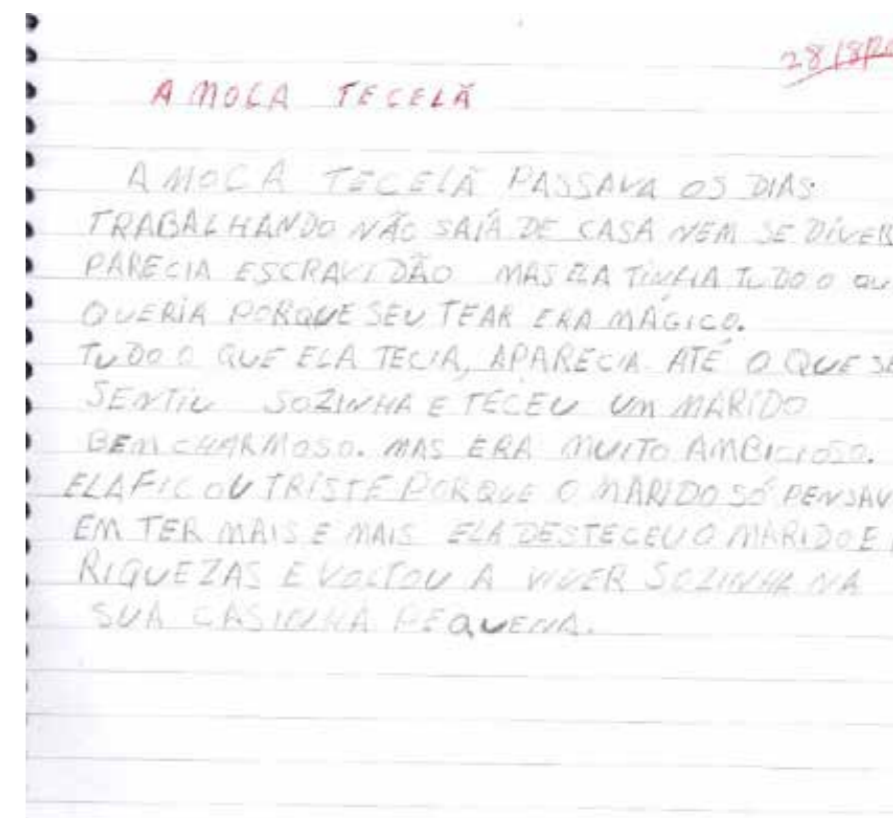 28/8/20
A MOCA TECELÃ
A MOCA TECELÃ PASSAVA OS DIAS
TRABALHANDO NÃO SAÍA DE CASA NEM SE DIVER
PARECIA ESCRAVIDÃO MAS ELA TINHA TUDO O QU
QUERIA PORQUE SEU TEAR ERA MÁGICO.
TUDO O QUE ELA TECIA, APARECIA. ATÉ O QUE SE
SENTIU SOZINHA E TECEU UM MARIDO
BEM CHARMOSO. MAS ERA MUITO AMBICIOSO.
ELA FICOU TRISTE PORQUE O MARIDO SÓ PENSAV
EM TER MAIS E MAIS ELA DESTECEU O MARIDO E
RIQUEZAS E VOLTOU A VIVER SOZINHA NA
SUA CASINHA PEQUENA.